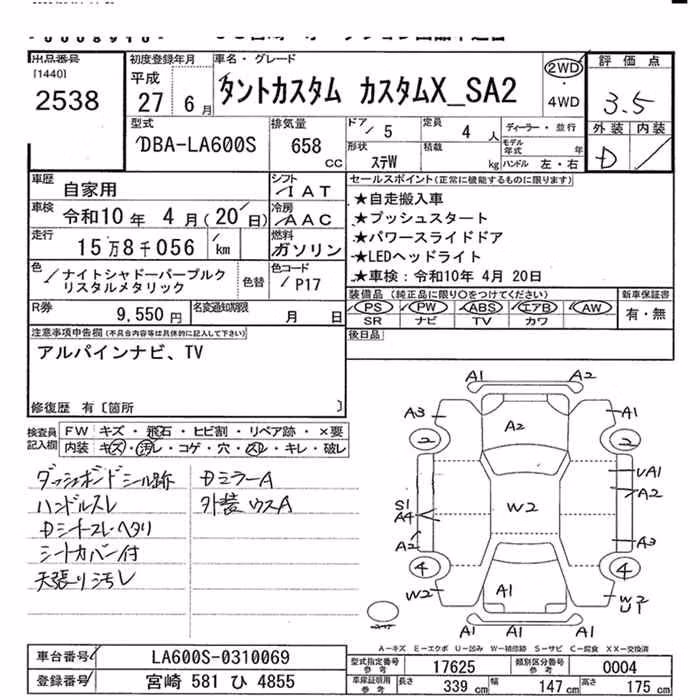 出品番号
[1440]
2538
初度登録年月
平成
27 6月
車名・グレード
タントカスタム カスタムX_SA2
2WD
・
4WD
評価点
3.5
外装 内装
D
型式
DBA-LA600S
排気量
658
CC
ドア
5
定員
4 人
ディーラー・並行
形状
ステW
積載
kg
モデル年式 年
ハンドル 左・右
車歴 自家用
シフト
IAT
車検 令和10年 4月(20日)
冷房
AAC
走行 15万8千056 km
燃料
ガソリン
色
ナイトシャドーパープルク
リスタルメタリック
色替
色コード
P17
R券 9,550円
名変通知期限
月 日
セールスポイント(正常に機能するものに限ります)
★自走搬入車
★プッシュスタート
★パワースライドドア
★LEDヘッドライト
★車検：令和10年 4月 20日
装備品(純正品に限り○をつけてください)
PS PW ABS エアB AW
SR ナビ TV カワ
新車保証書
有・無
後日品
注意事項申告欄(不具合内容等は具体的に記入して下さい)
アルパインナビ、TV
修復歴 有〔箇所 〕
検査員
記入欄
FW キズ・飛石・ヒビ割・リペア跡・×要
内装 キズ・汚レ・コゲ・穴・スレ・キレ・破レ
ダッシュボードシール跡
ハンドルスレ
Dシートスレ・ヘタリ
シートカバー付
天張り汚レ
DミラーA
外装ウスA
A1 A2
A3 A2 A1
2 2
UA1
A2
S1
A4
W2
A2 A3
4 4
W2 A1 W2
U1
A1 A1 A1
A－キズ E－エクボ U－凹み W－補修跡 S－サビ C－腐食 XX－交換済
車台番号 LA600S-0310069
登録番号 宮崎 581 ひ 4855
型式指定番号
参考
17625
類別区分番号
参考
0004
車庫証明用
参考
長さ 339 cm 幅 147 cm 高さ 175 cm